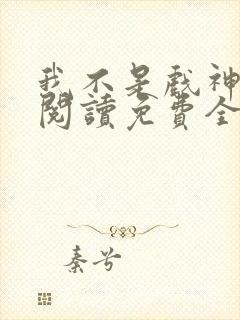 我不是戲神
閱讀免費全
秦兮